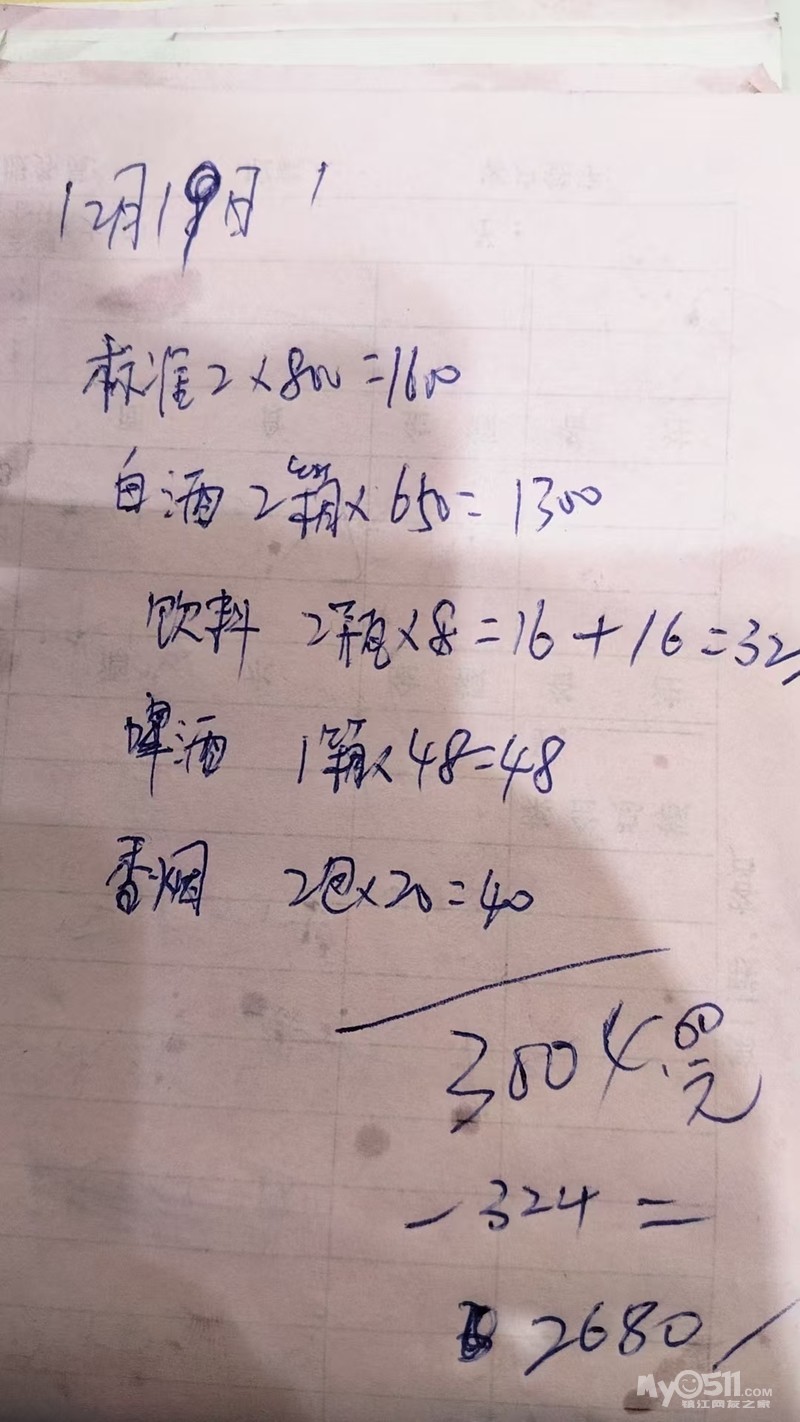 12月19日
标准2×800=1600
白酒 2箱×650=1300
饮料 2瓶×8=16+16=32
啤酒 1箱×48=48
香烟 2包×20=40
3004.00元
-324=
2680
My0511.COM
镇江网友之家